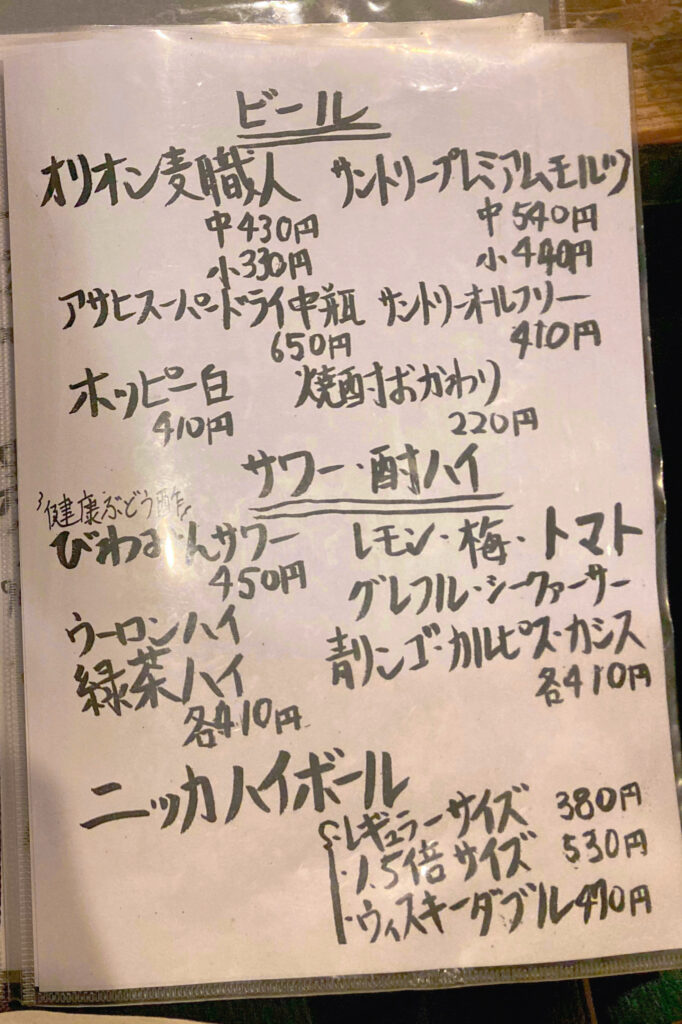 ビール
オリオン麦職人 サントリープレミアムモルツ
中430円 中540円
小330円 小440円
アサヒスーパードライ中瓶 サントリーオールフリー
650円 410円
ホッピー白 焼酎おかわり
410円 220円
サワー・酎ハイ
健康ぶどう酢
びわみんサワー レモン・梅・トマト
450円 グレフル・シークァーサー
ウーロンハイ 青リンゴ・カルピス・カシス
緑茶ハイ 各410円
各410円
ニッカハイボール
・レギュラーサイズ 380円
・1.5倍サイズ 530円
・ウィスキーダブル 470円